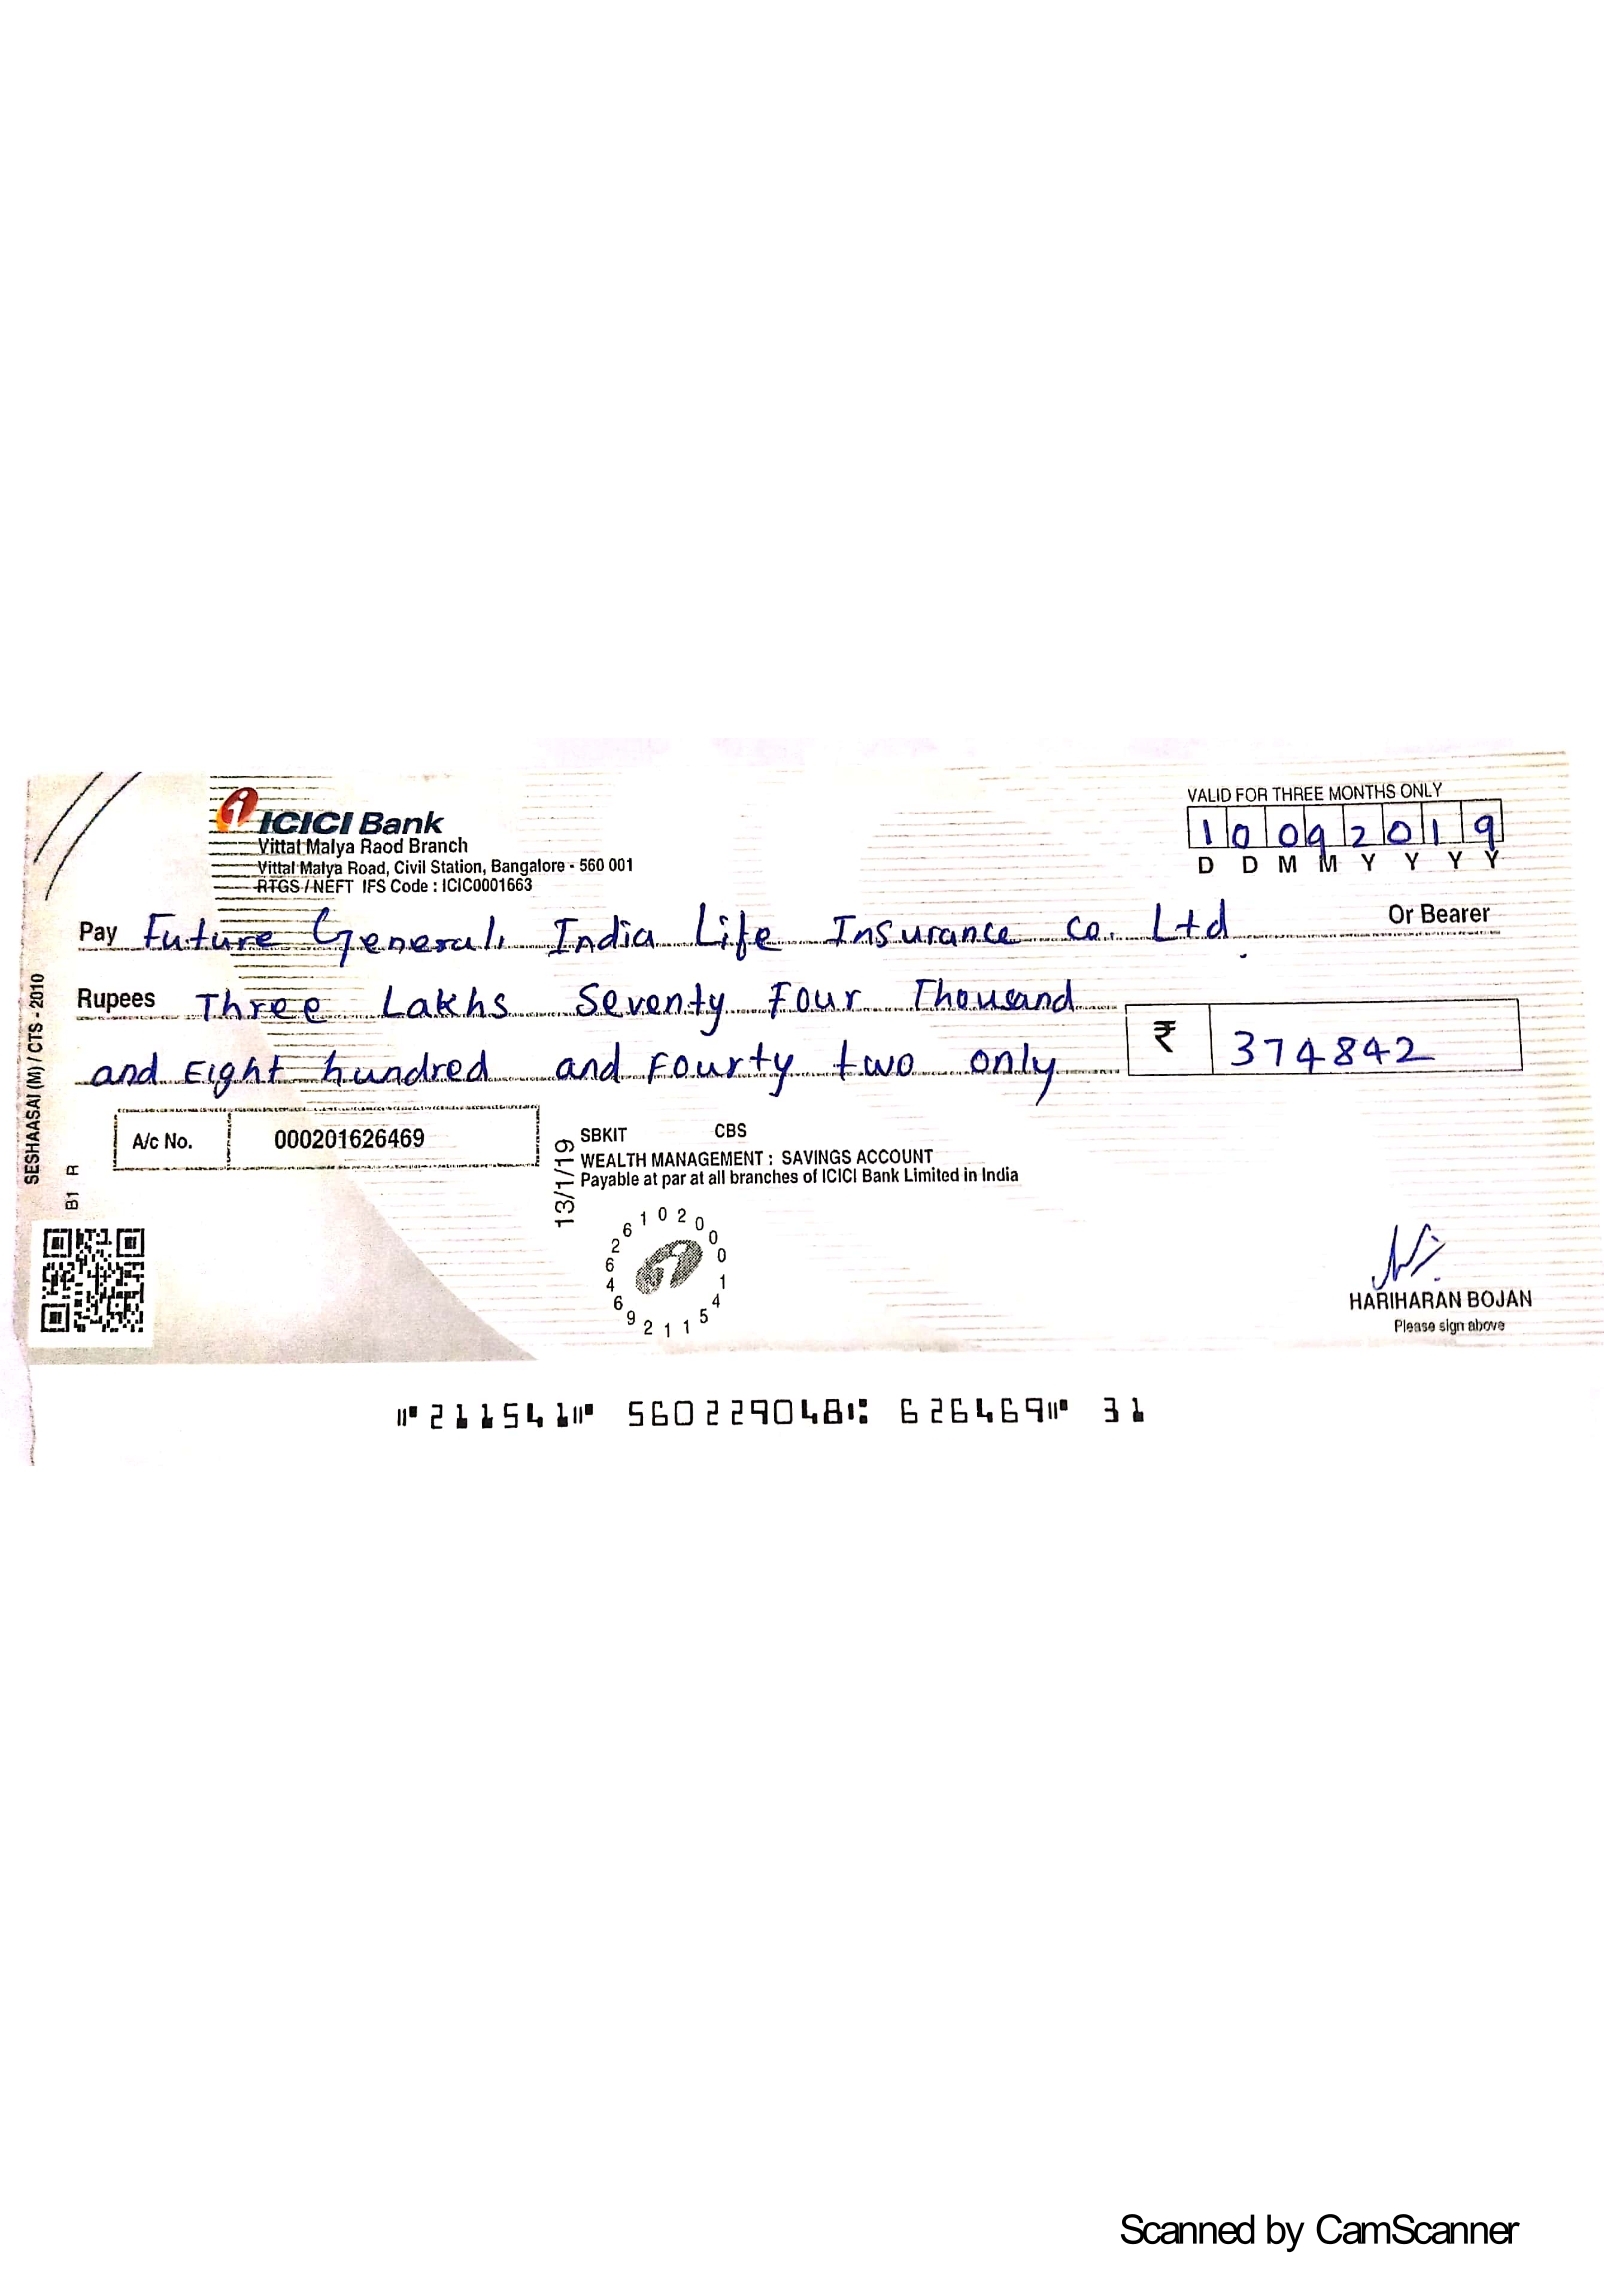 ICICI Bank
Vittal Malya Raod Branch
Vittal Malya Road, Civil Station, Bangalore - 560 001
RTGS / NEFT IFS Code : ICIC0001663
VALID FOR THREE MONTHS ONLY
10092019
D D M M Y Y Y Y
Pay Future Generali India Life Insurance co. Ltd. Or Bearer
Rupees Three Lakhs Seventy Four Thousand
and Eight hundred and Fourty two only
₹ 374842
A/c No. 000201626469
SBKIT CBS
WEALTH MANAGEMENT : SAVINGS ACCOUNT
Payable at par at all branches of ICICI Bank Limited in India
13/1/19
SESHAASAI (M) / CTS - 2010
B1 R
000201626469211541
HARIHARAN BOJAN
Please sign above
⑈211541⑈ 560229048⑆ 626469⑈ 31
Scanned by CamScanner